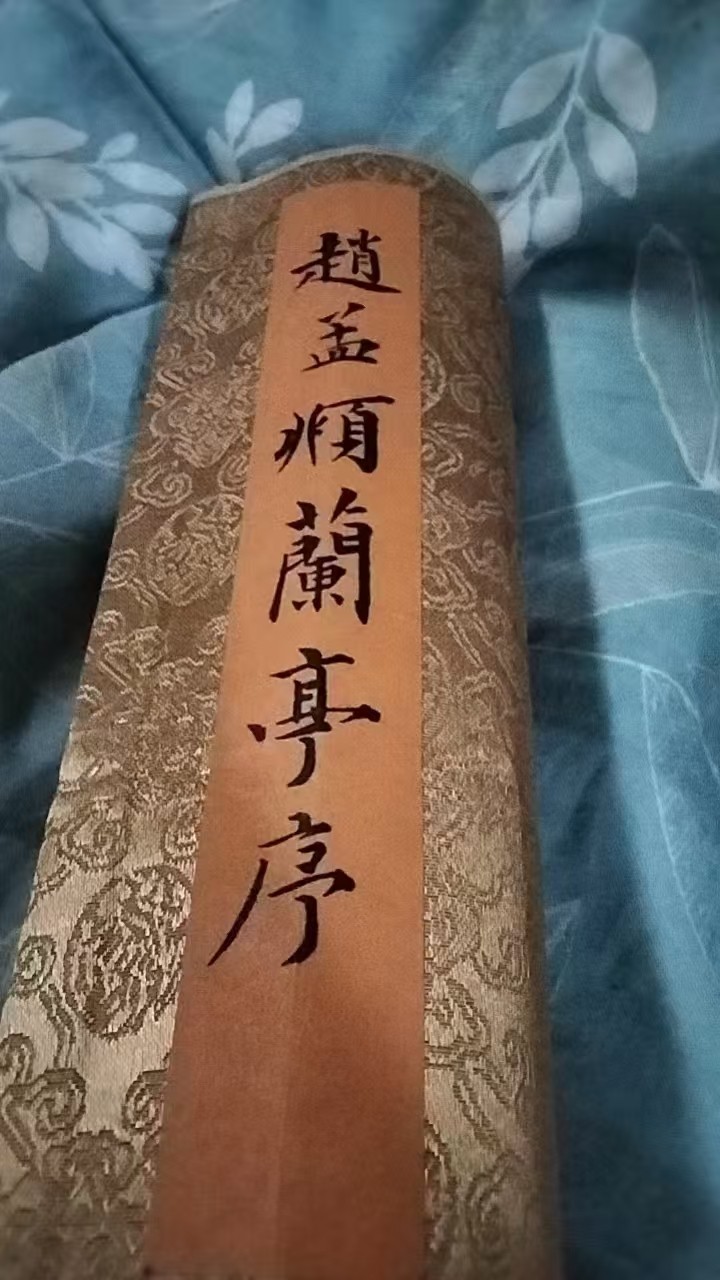 趙孟頫蘭亭序